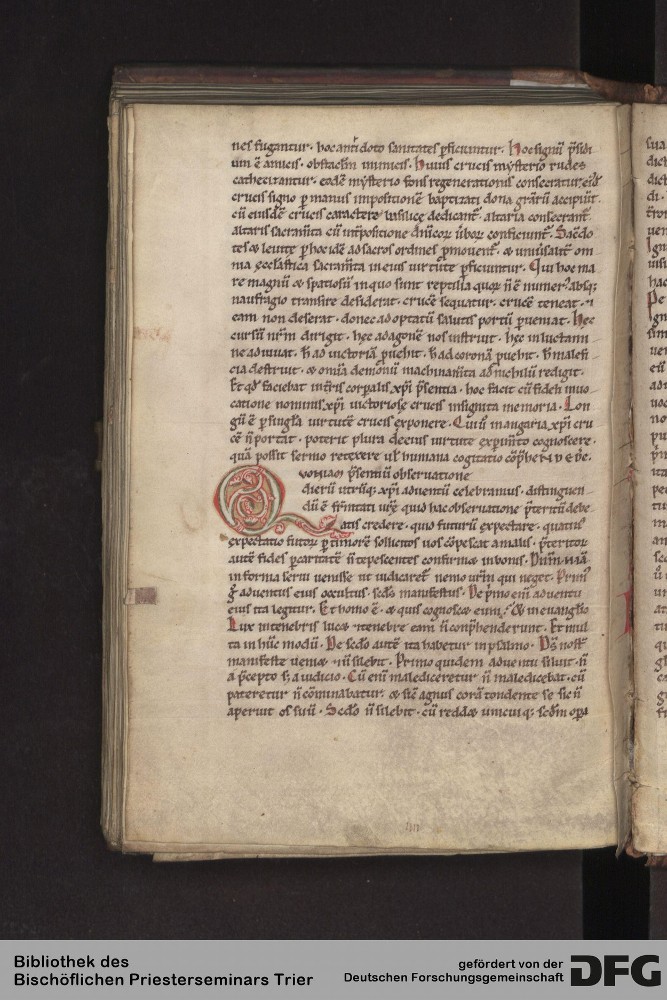 nes fugantur. hoc antidoto sanitates ꝑficiuntur. Hoc signū p̄sidi
um ē amicis. obstaclm inimicis. Huius crucis mẏsterio rudes
cathecizantur. eodē mẏsterio fons regenerationis consecratur. eiꝰdē
crucis signo ꝑ manus impositionē baptizati dona gr̄arū accipiūt.
cū eiusdē crucis caractere basilice dedicant̄. altaria consecrant̄.
altaris sacram̄ta cū int̄positione dn̄icoꝝ ūboꝝ conficiunt̄. Sac̄do
tes & leuite ꝑ hoc idē ad sacros ordines ꝓmouent̄. & uniūsalit̄ om
nia ęcclesiastica sacram̄ta in eius uirtute ꝑficiuntur. Qui hoc ma
re magnū & spatiosū in quo sunt reptilia quoꝝ n̄ ē numerꝰ absqꝫ
naufragio transire desiderat. crucē sequatur. crucē teneat. ⁊
eam non deserat. donec ad optatū salutis portū ꝑueniat. Hęc
cursū nr̄m dirigit. hęc ad agonē nos instruit. hęc in luctami
ne adiuuat. h̄ ad uictoriā ꝑuehit. h̄ ad coronā ꝓuehit. h̄ malefi
cia destruit. & om̄ia demonū machinam̄ta ad nichilū redigit.
Et qd̄ faciebat in t̄ris corꝑalis xp̄i p̄sentia. hoc facit cū fideli inuo
catione nominis xp̄i uictoriose crucis insignita memoria. Lon
gū ē ꝑ singl̄a uirtutē crucis exponere. Cui ū in angaria xp̄i cru
cē n̄ portat. poterit plura de eius uirtute exꝑim̄to cognoscere.
quā possit sermo retexere ul̄ humana cogitatio cōp̄hendere.
Quoniam p̄sentiū obseruatione
dierū utrūqꝫ xp̄i aduentū celebramus. distinguen
dū ē fr̄nitati ur̄ę quid hac obseruatione p̄teritū debe
atis credere. quid futurū expectare. quatinꝰ
expectatio futuroꝝ ꝑ timorē sollicitos uos cōpescat a malis. p̄teritoꝝ
autē fides ꝑ caritatē n̄ tepescentes confirmet in bonis.
in forma serui uenisse ut iudicaret̄ nemo ur̄m qui neget. Primꝰ
g̊ aduentus eius occultus. scd̄s manifestus. De p̄mo eni aduentu
eius ita legitur. Et homo ē. & quis cognoscet eum. & in euanglio
Lux in tenebris lucet ⁊ tenebre eam n̄ comp̄henderunt. Et mul
ta in hūc modū. De scd̄o autē ita habetur in psalmo. Ds̄ nost̄
manifeste ueniet ⁊ n̄ silebit. Primo quidem aduentu siluit. n̄
a p̄cepto sꝫ a iudicio. Cū eni malediceretur n̄ maledicebat. cū
pateretur n̄ cōminabatur. & sic̄ agnus corā tondente se sic n̄
aperuit os suū. Scd̄o n̄ silebit. cū reddet unicuiqꝫ scd̄m oꝑa
Bibliothek des
Bischöflichen Priesterseminars Trier
gefördert von der
Deutschen Forschungsgemeinschaft
DFG